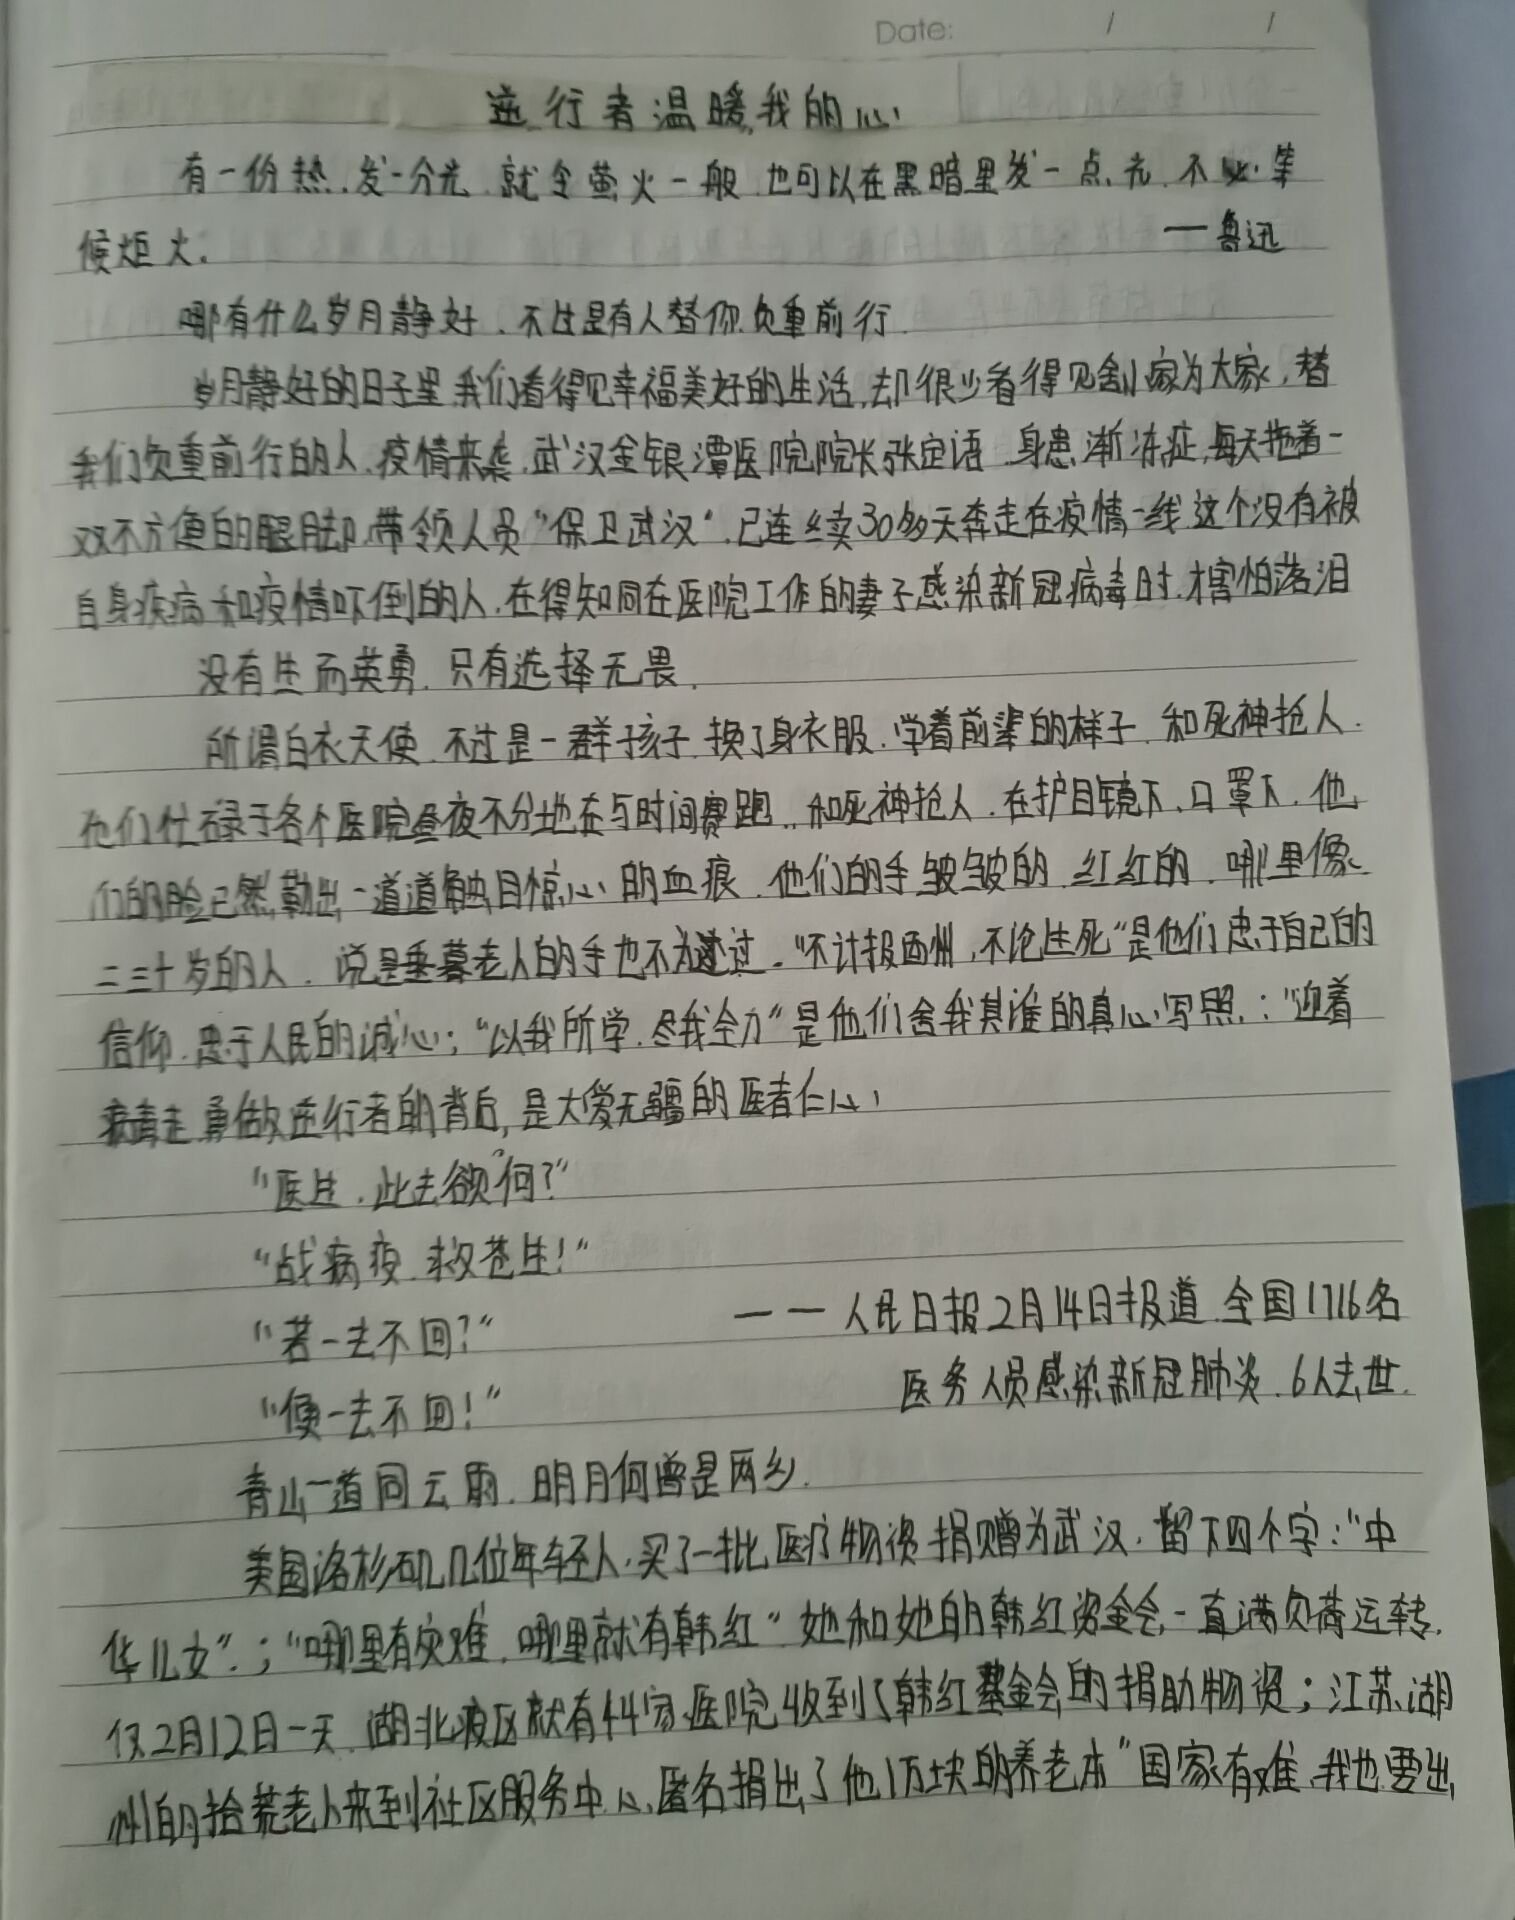 Date: / /
逆行者温暖我的心
有一份热.发一分光.就令萤火一般.也可以在黑暗里发一点光.不必等
候炬火. ——鲁迅
哪有什么岁月静好.不过是有人替你负重前行.
岁月静好的日子里,我们看得见幸福美好的生活,却很少看得见舍小家为大家,替
我们负重前行的人.疫情来袭.武汉金银潭医院院长张定语.身患渐冻症,每天拖着一
双不方便的腿脚,带领人员“保卫武汉”.已连续30多天奔走在疫情一线.这个没有被
自身疾病和疫情吓倒的人,在得知同在医院工作的妻子感染新冠病毒时,才害怕落泪
没有生而英勇.只有选择无畏.
所谓白衣天使.不过是一群孩子.换了身衣服.学着前辈的样子.和死神抢人.
他们忙碌于各个医院昼夜不分地在与时间赛跑,和死神抢人.在护目镜下、口罩下.他
们的脸已然勒出一道道触目惊心的血痕.他们的手皱皱的.红红的.哪里像
二三十岁的人.说是垂暮老人的手也不为过.“不计报酬,不论生死”是他们忠于自己的
信仰.忠于人民的诚心;“以我所学.尽我全力”是他们舍我其谁的真心写照.;“迎着
病毒走.勇做逆行者的背后,是大爱无疆的医者仁心
“医生.此去欲何?”
“战病疫.救苍生!”
“若一去不回?” ——人民日报2月14日报道.全国1716名
“便一去不回!” 医务人员感染新冠肺炎.6人去世.
青山一道同云雨.明月何曾是两乡.
美国洛杉矶几位年轻人.买了一批医疗物资捐赠为武汉.留下四个字:“中
华儿女”.;“哪里有灾难.哪里就有韩红”她和她的韩红资金会一直满负荷运转.
仅2月12日一天.湖北疫区就有44家医院收到了韩红基金会的捐助物资;江苏湖
州的拾荒老人来到社区服务中心.匿名捐出了他1万块的养老本“国家有难.我也要出